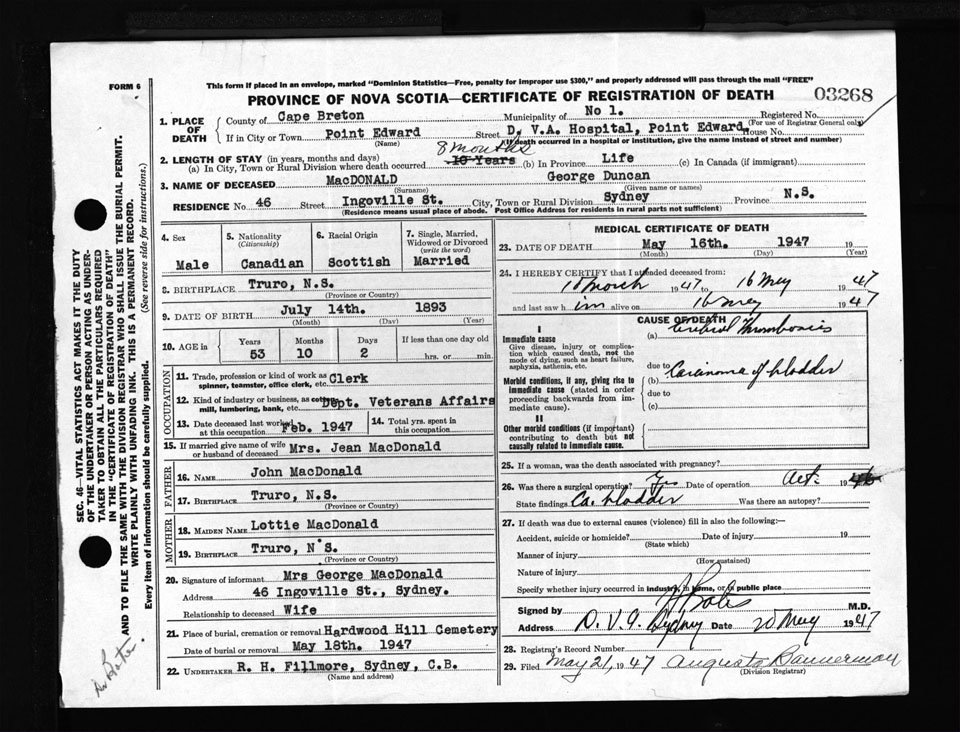 FORM 6
This form if placed in an envelope, marked "Dominion Statistics—Free, penalty for improper use $300," and properly addressed will pass through the mail "FREE"
PROVINCE OF NOVA SCOTIA—CERTIFICATE OF REGISTRATION OF DEATH
03268
1. PLACE OF DEATH
County of Cape Breton Municipality of No 1. Registered No.
(For use of Registrar General only)
If in City or Town Point Edward Street D. V.A. Hospital, Point Edward, House No.
(Name) (If death occurred in a hospital or institution, give the name instead of street and number)
2. LENGTH OF STAY (in years, months and days) 8 months
(a) In City, Town or Rural Division where death occurred 10 Years (b) In Province Life (c) In Canada (if immigrant)
3. NAME OF DECEASED MacDONALD George Duncan
(Surname) (Given name or names)
RESIDENCE No. 46 Street Ingoville St. City, Town or Rural Division Sydney Province N.S.
(Residence means usual place of abode. Post Office Address for residents in rural parts not sufficient)
4. Sex
Male
5. Nationality (Citizenship)
Canadian
6. Racial Origin
Scottish
7. Single, Married, Widowed or Divorced (write the word)
Married
8. BIRTHPLACE Truro, N.S.
(Province or Country)
9. DATE OF BIRTH July 14th. 1893
(Month) (Day) (Year)
10. AGE in Years Months Days If less than one day old
53 10 2 hrs. or min.
OCCUPATION
11. Trade, profession or kind of work as spinner, teamster, office clerk, etc. Clerk
12. Kind of industry or business, as cotton mill, lumbering, bank, etc. Dept. Veterans Affairs
13. Date deceased last worked at this occupation Feb. 1947
14. Total yrs. spent in this occupation
15. If married give name of wife or husband of deceased Mrs. Jean MacDonald
FATHER
16. Name John MacDonald
17. Birthplace Truro, N.S.
(Province or Country)
MOTHER
18. Maiden Name Lottie MacDonald
19. Birthplace Truro, N.S.
(Province or Country)
20. Signature of informant Mrs George MacDonald
Address 46 Ingoville St., Sydney.
Relationship to deceased Wife
21. Place of burial, cremation or removal Hardwood Hill Cemetery
Date of burial or removal May 18th. 1947
22. Undertaker R. H. Fillmore, Sydney, C.B.
(Name and address)
MEDICAL CERTIFICATE OF DEATH
23. DATE OF DEATH May 16th. 1947 19
(Month) (Day) (Year)
24. I HEREBY CERTIFY that I attended deceased from:
10 March 1947 to 16 May 1947
and last saw h im alive on 16 May 1947
CAUSE OF DEATH
I
Immediate cause
Give disease, injury or complication which caused death, not the mode of dying, such as heart failure, asphyxia, asthenia, etc.
(a) Cerebral Thrombosis
due to
Morbid conditions, if any, giving rise to immediate cause (stated in order proceeding backwards from immediate cause).
(b) Carcinoma of bladder
due to
(c)
II
Other morbid conditions (if important) contributing to death but not causally related to immediate cause.
25. If a woman, was the death associated with pregnancy?
26. Was there a surgical operation? Yes Date of operation Oct. 1946
State findings Ca. bladder Was there an autopsy?
27. If death was due to external causes (violence) fill in also the following:—
Accident, suicide or homicide? Date of injury 19
(State which)
Manner of injury
(How sustained)
Nature of injury
Specify whether injury occurred in industry, in home, or in public place
Signed by M.D.
Address D.V.A. Sydney Date 20 May 1947
28. Registrar's Record Number
29. Filed May 21, 1947 Augusta Bannerman
(Division Registrar)
SEC. 46—VITAL STATISTICS ACT MAKES IT THE DUTY
OF THE UNDERTAKER OR PERSON ACTING AS UNDER-
TAKER TO OBTAIN ALL THE PARTICULARS REQUIRED
IN THE "CERTIFICATE OF REGISTRATION OF DEATH"
AND TO FILE THE SAME WITH THE DIVISION REGISTRAR WHO SHALL ISSUE THE BURIAL PERMIT.
WRITE PLAINLY WITH UNFADING INK. THIS IS A PERMANENT RECORD.
Every item of information should be carefully supplied. (See reverse side for instructions.)